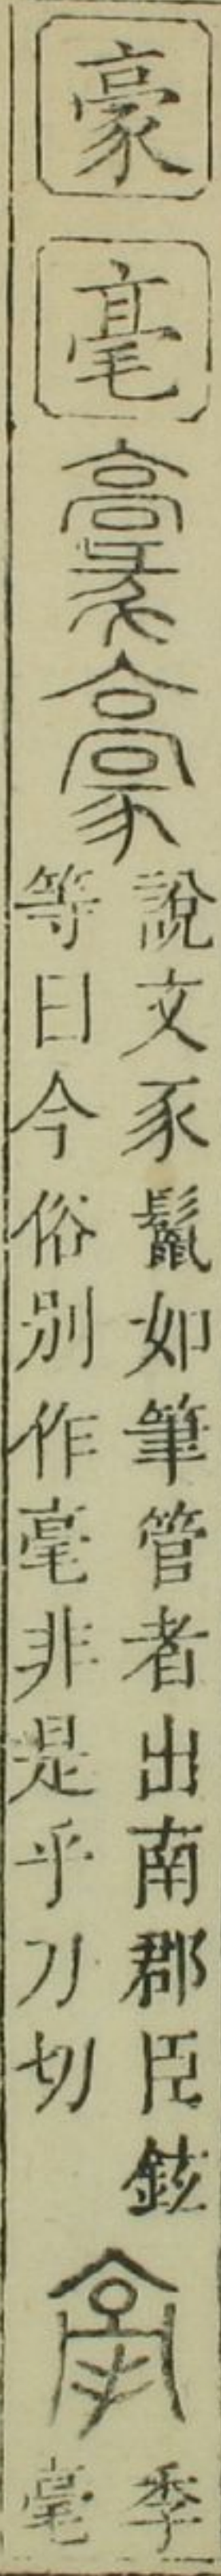 豪
毫
說文豕鬣如筆管者出南郡臣鉉
等曰今俗別作毫非是乎刀切
季
毫